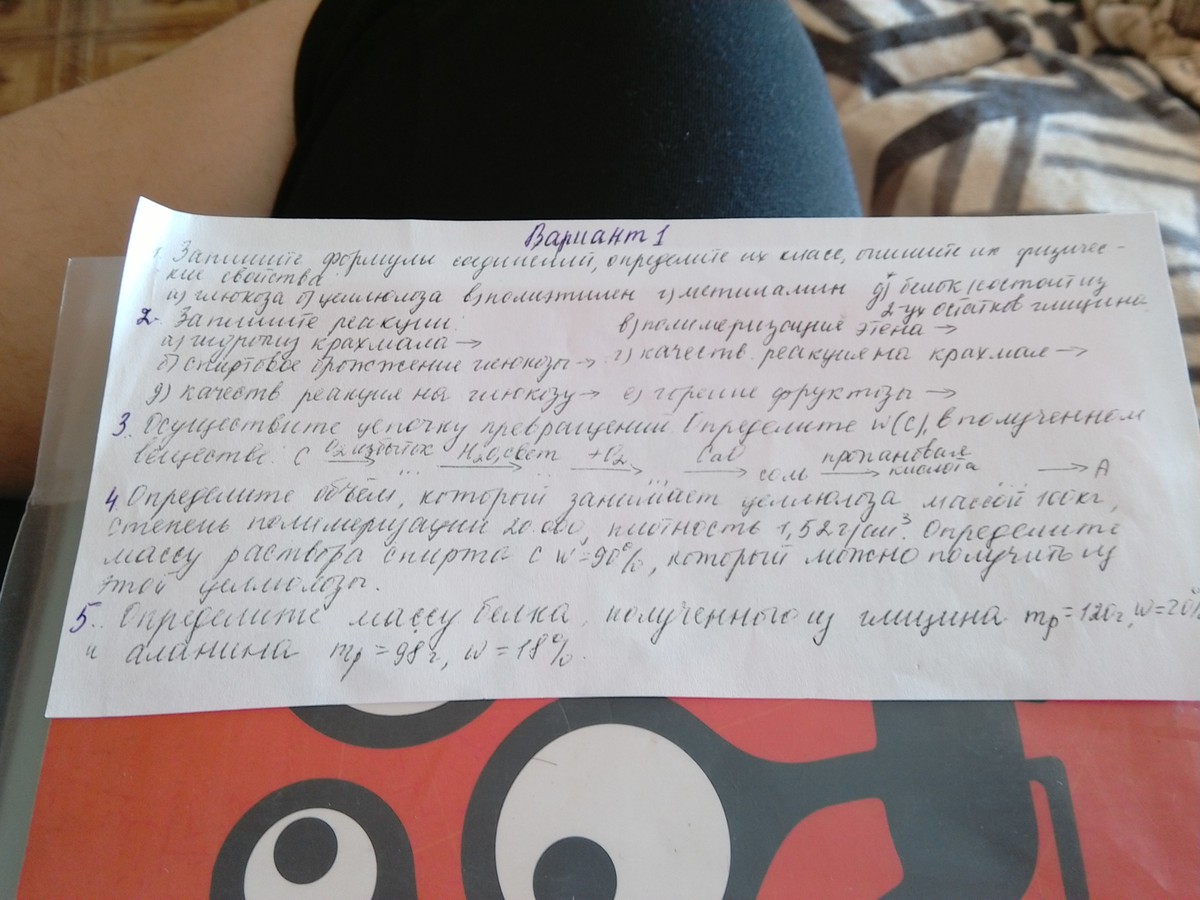 Вариант 1
1. Запишите формулы соединений, определите их класс, опишите их физичес-
кие свойства
а) глюкоза б) целлюлоза в) полиэтилен г) метиламин д)* белок (состоит из
2-ух остатков глицина
2. Запишите реакции:
а) гидролиз крахмала → в) полимеризация этена →
б) спиртовое брожжение глюкозы → г) качеств. реакция на крахмал →
д) качеств реакция на глюкозу → е) горение фруктозы →
3. Осуществите цепочку превращений. Определите w(C), в полученном
веществе: C O₂ избыток → ... H₂O, свет → ... +O₂ → ... CaO → соль пропановая кислота → ... → A
4. Определите объём, который занимает целлюлоза массой 100кг,
степень полимеризации 20.000, плотность 1,52 г/см³. Определите
массу раствора спирта с w=90%, который можно получить из
этой целлюлозы.
5. Определите массу белка, полученного из глицина mр=120г, w=20%
и аланина mр=98г, w=18%.